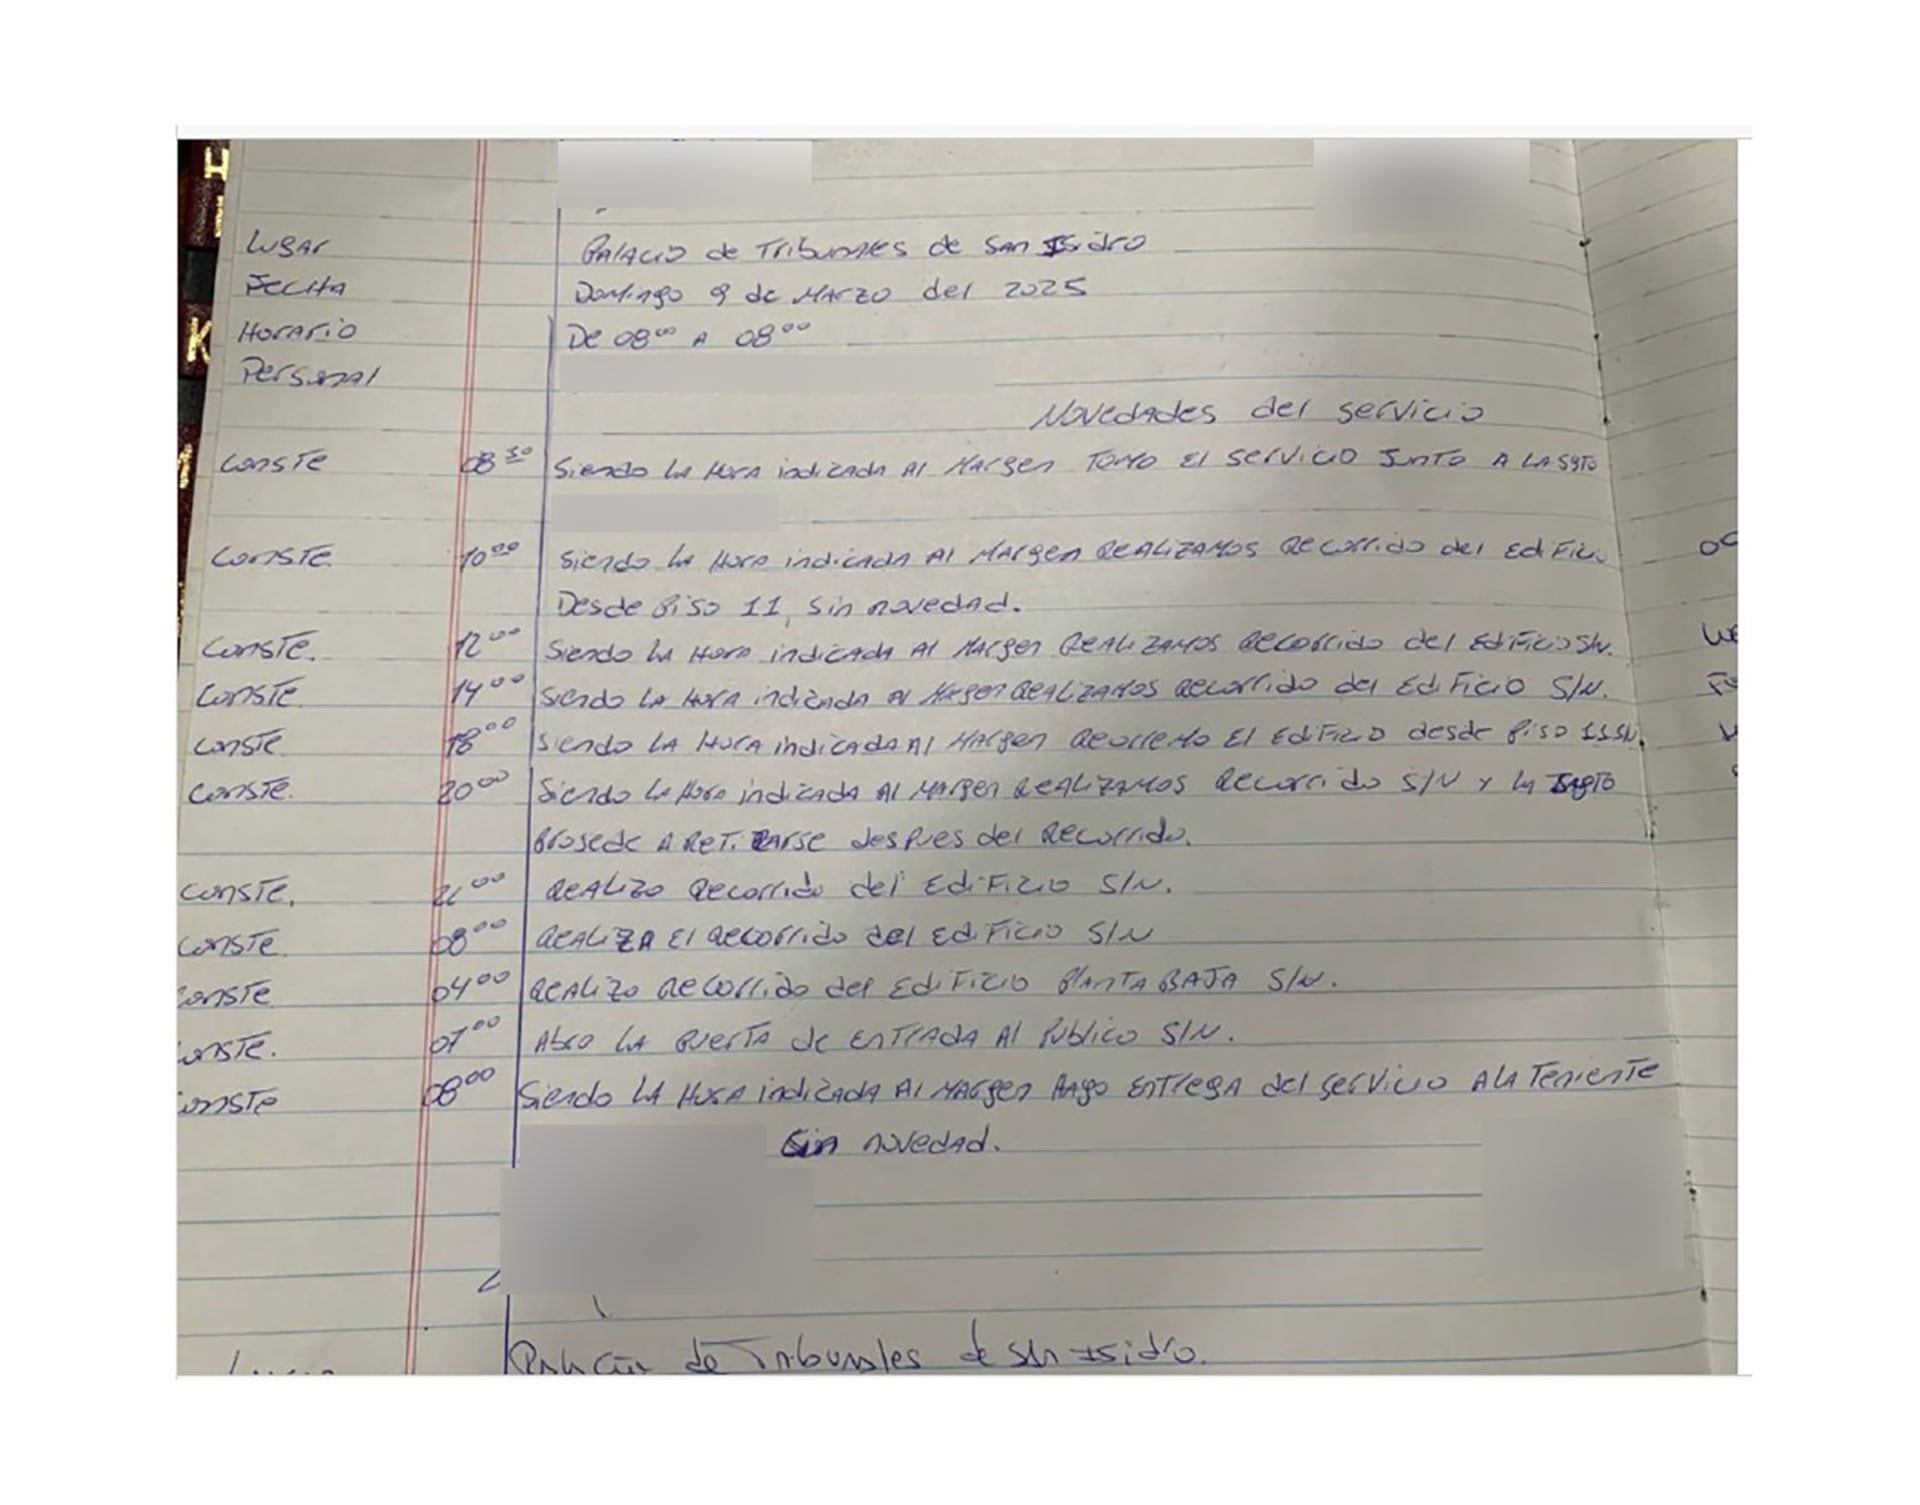 Lugar Palacio de Tribunales de San Isidro
Fecha Domingo 9 de Marzo del 2025
Horario De 08⁰⁰ A 08⁰⁰
Personal
Novedades del servicio
Conste 08³⁰ Siendo la Hora indicada Al Margen Tomo El servicio Junto A LA Sgto
Conste 10⁰⁰ Siendo la Hora indicada Al Margen Realizamos Recorrido del Edificio
Desde Piso 11, sin novedad.
Conste. 12⁰⁰ Siendo la Hora indicada Al Margen Realizamos Recorrido del Edificio S/N.
Conste. 14⁰⁰ Siendo la Hora indicada Al Margen Realizamos Recorrido del Edificio S/N.
Conste. 18⁰⁰ Siendo la Hora indicada Al Margen Recorremo El Edificio desde Piso 11 S/N.
Conste. 20⁰⁰ Siendo la Hora indicada Al Margen Realizamos Recorrido S/N y la Sagto
Prosede A Retirarse despues del Recorrido.
Conste. 00 Realizo Recorrido del Edifizio S/N.
Conste. 08⁰⁰ Realiza El Recorrido del Edificio S/N
onste 04⁰⁰ Realizo Recorrido del Edificio Planta Baja S/N.
onste. 07⁰⁰ Abro la Puerta de Entrada Al Publico S/N.
onste 08⁰⁰ Siendo la Hora indicada Al Margen Hago Entrega del servicio A la Teniente
Sin novedad.
Palacio de Tribunales de San Isidro.
H
K